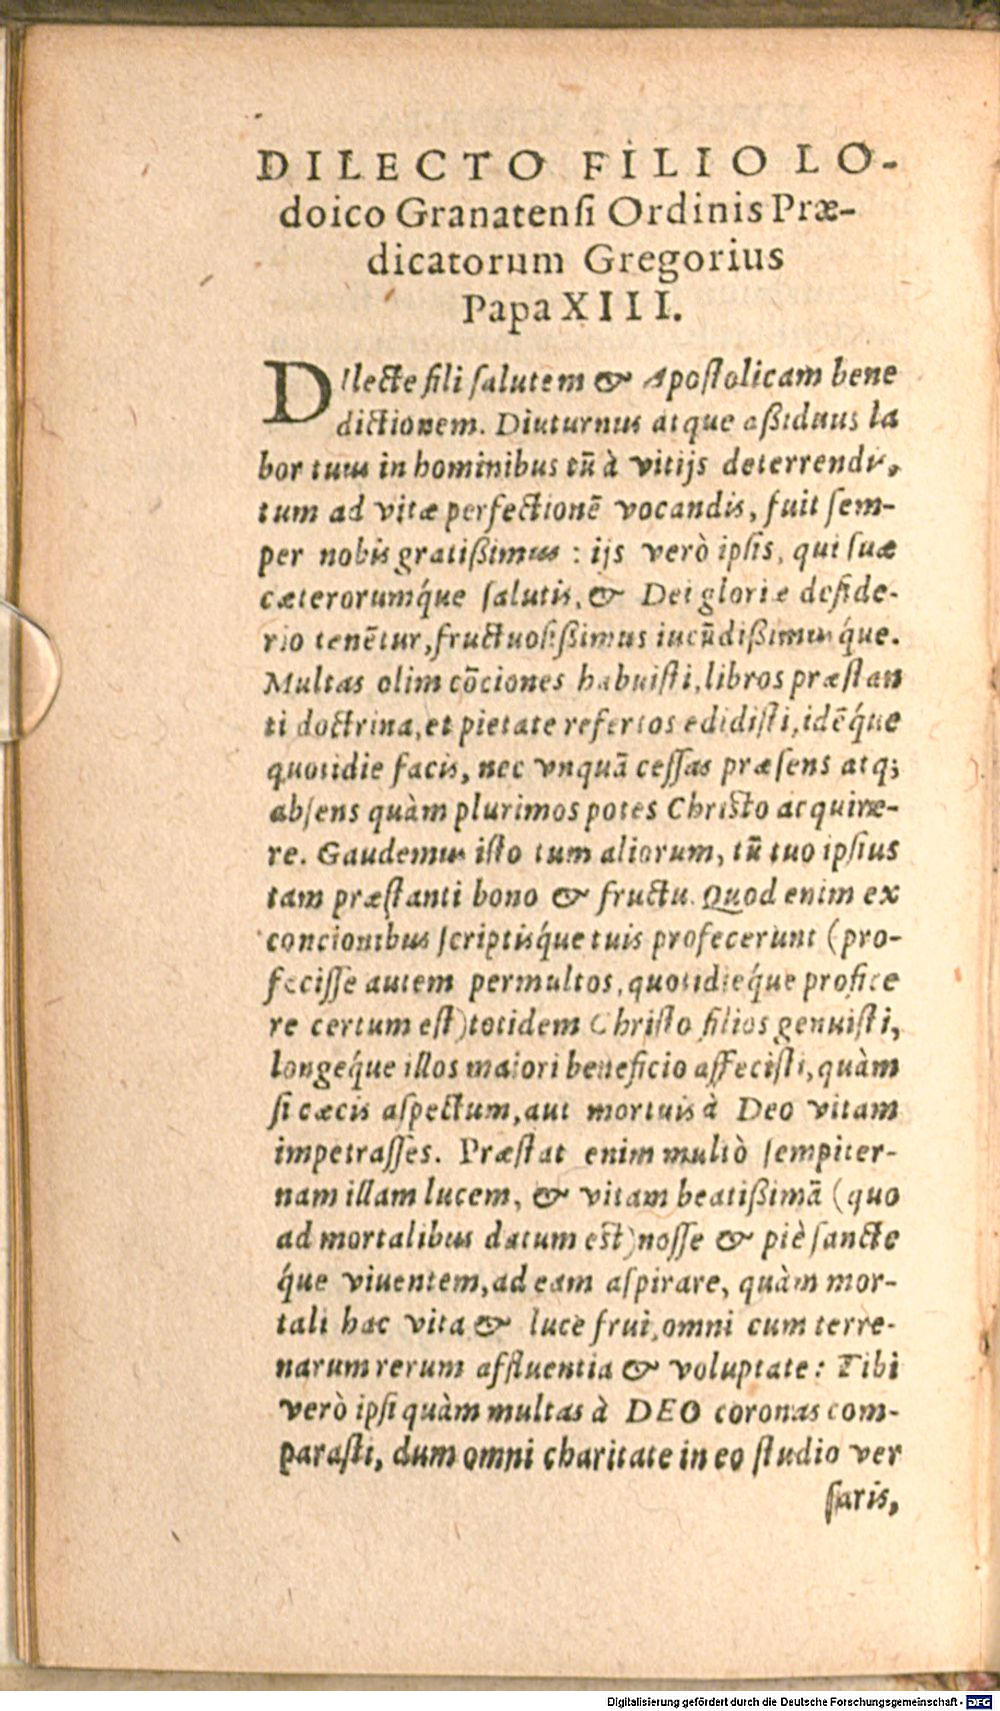 DILECTO FILIO LO-
doico Granatensi Ordinis Præ-
dicatorum Gregorius
Papa XIII.
DIlecte fili salutem & Apostolicam bene
dictionem. Diuturnus atque aßiduus la
bor tuus in hominibus tũ à vitijs deterrendis,
tum ad vitæ perfectionẽ vocandis, fuit sem-
per nobis gratißimus : ijs verò ipsis, qui suæ
cæterorumq́ue salutis, & Dei gloriæ deside-
rio tenẽtur, fructuosißimus iucũdißimusq́ue.
Multas olim cõciones habuisti, libros præstan
ti doctrina, et pietate refertos edidisti, idẽq́ue
quotidie facis, nec vnquã cessas præsens atq;
absens quàm plurimos potes Christo acquire-
re. Gaudemus isto tum aliorum, tũ tuo ipsius
tam præstanti bono & fructu. Quod enim ex
concionibus scriptisq́ue tuis profecerunt (pro-
fecisse autem permultos, quotidieq́ue profice
re certum est) totidem Christo filios genuisti,
longeq́ue illos maiori beneficio affecisti, quàm
si cæcis aspectum, aut mortuis à Deo vitam
impetrasses. Præstat enim multò sempiter-
nam illam lucem, & vitam beatißimã (quo
ad mortalibus datum est) nosse & piè sancte
q́ue viuentem, ad eam aspirare, quàm mor-
tali hac vita & luce frui, omni cum terre-
narum rerum affluentia & voluptate: Tibi
verò ipsi quàm multas à DEO coronas com-
parasti, dum omni charitate in eo studio ver
saris,
Digitalisierung gefördert durch die Deutsche Forschungsgemeinschaft - DFG